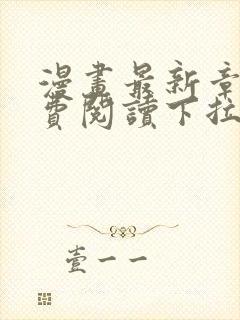 漫畫最新章
費閱讀下拉
壹一一